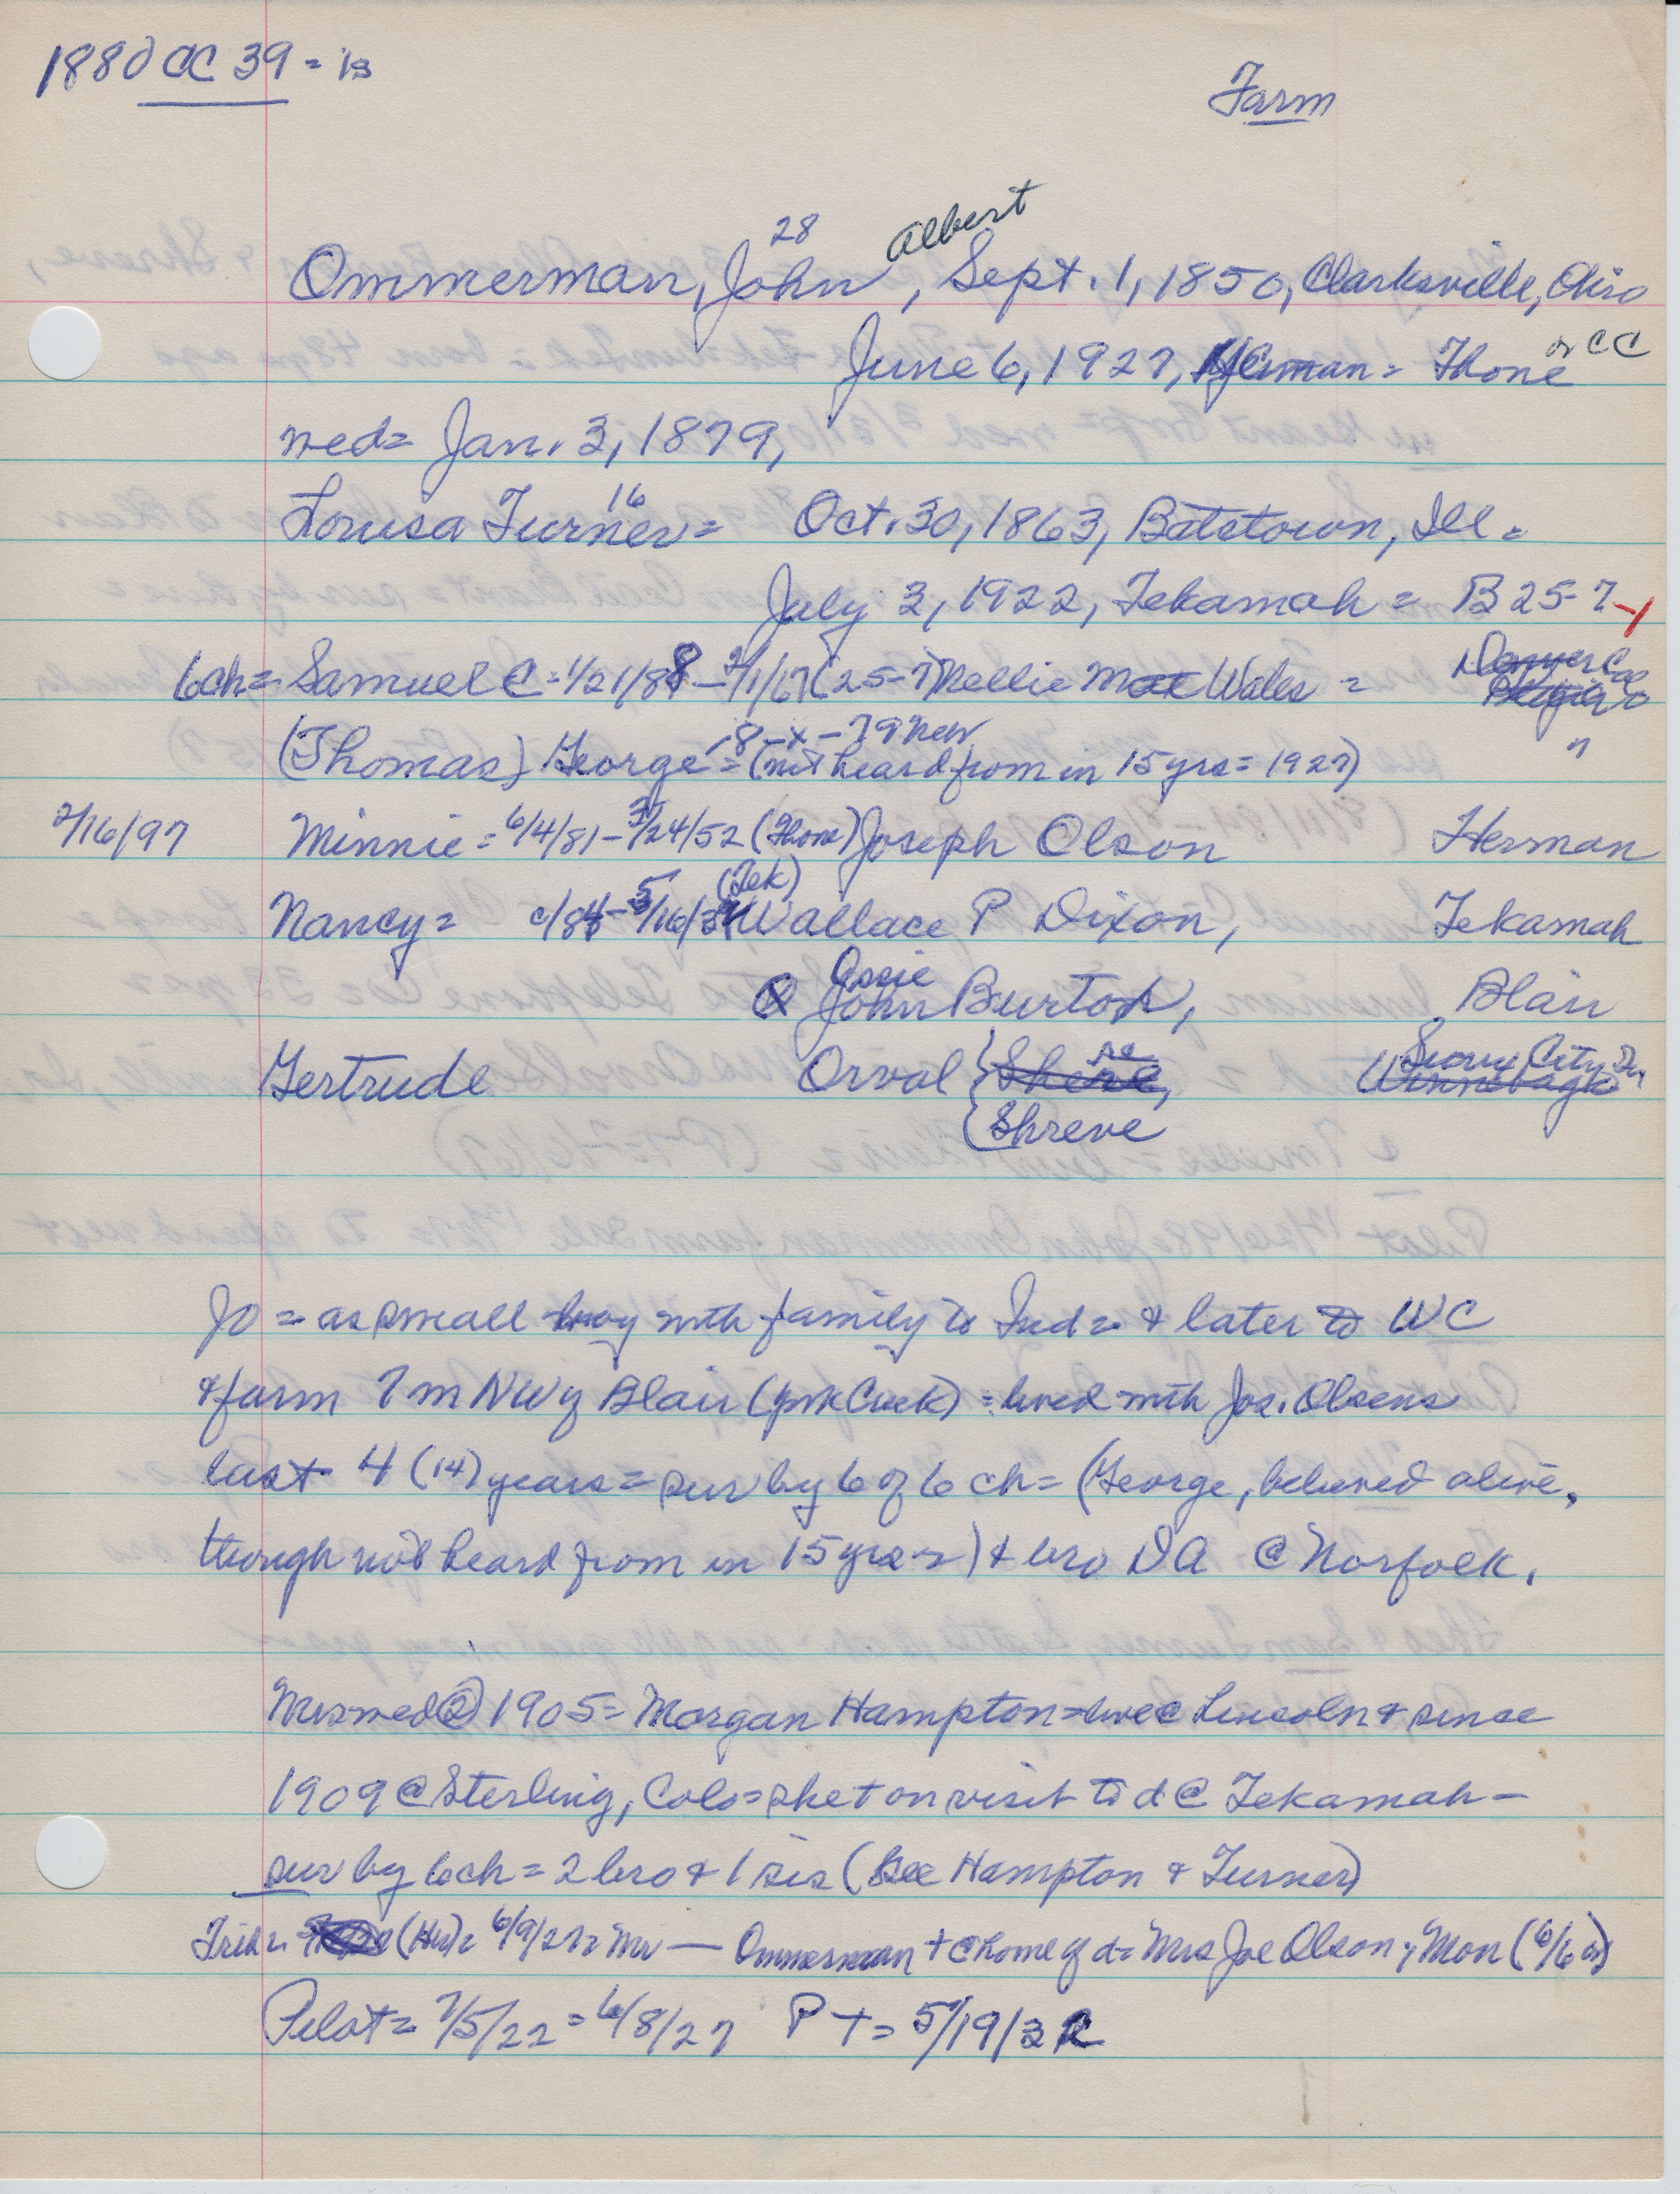 1880 CC 39 = is
Farm
28 Albert
Ommerman, John, Sept. 1, 1850, Clarksville, Ohio
June 6, 1927, Herman = Thone or CC
med = Jan. 3, 1879,
16
Louisa Turner = Oct. 30, 1863, Batetown, Ill =
July 3, 1922, Tekamah = B 25-7-1
6ch = Samuel C = 1/21/88 - 2/1/67 (25-7) Nellie Mae Wales = Denver Colo
-8-x-79 Neb
(Thomas) George = (not heard from in 15 yrs = 1927) "
2/16/97 Minnie = 6/4/81 - 3/24/52 (Thone) Joseph Olson Herman
(Tek)
Nancy = c/84 - 5/16/32 Wallace P Dixon, Tekamah
Ossie
John Burton, Blair
Gertrude Orval { Shere, Sioux City Ia Winnebago
{ Shreve
JO = as small boy with family to Ind = & later to WC
& farm 7 m NW of Blair (York Creek) = lived with Jos. Olsens
last 4 (14) years = sur by 6 of 6 ch = (George, believed alive,
though not heard from in 15 yrs =) & bro DA @ Norfolk.
Mrs med ② 1905 = Morgan Hampton = live @ Lincoln & since
1909 @ Sterling, Colo = she + on visit to d @ Tekamah -
sur by 6ch = 2 bro & 1 sis (See Hampton & Turner)
Trib = (Her) = 6/9/27 = Mr — Ommerman + @ home of d = Mrs Joe Olson, Mon (6/6)
Pilot = 7/5/22 = 6/8/27 P T = 5/19/32